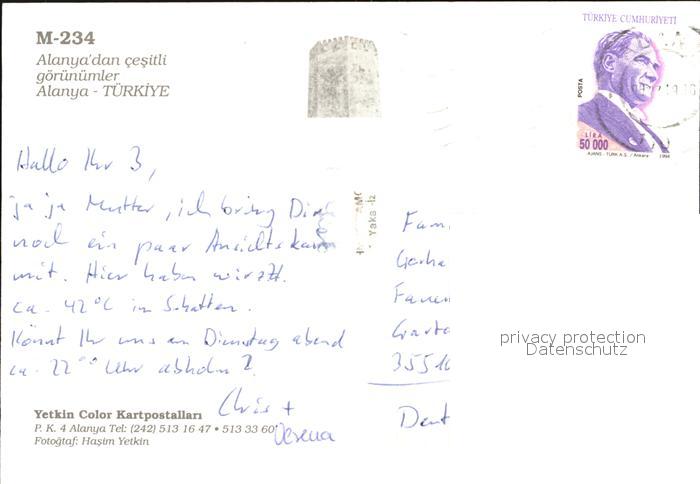 M-234
Alanya'dan çeşitli
görünümler
Alanya - TÜRKİYE
TÜRKİYE CUMHURİYETİ
POSTA
LİRA
50 000
AJANS - TÜRK A.S. / Ankara 1994
Hallo Ihr 3,
ja ja Mutter, ich bring Dir
noch ein paar Ansichtskarten
mit. Hier haben wir zzt.
ca. 42°C im Schatten.
Könnt Ihr uns am Dienstag abend
ca. 22°° Uhr abholen?
Chris +
Verena
Fam.
Gerha
Garte
3551
Deut
privacy protection
Datenschutz
Yetkin Color Kartpostalları
P. K. 4 Alanya Tel: (242) 513 16 47 • 513 33 60
Fotoğtaf: Haşim Yetkin